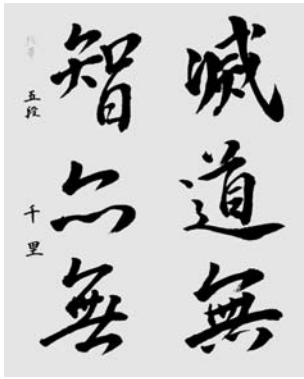 滅道無
智亦無
五段 千里